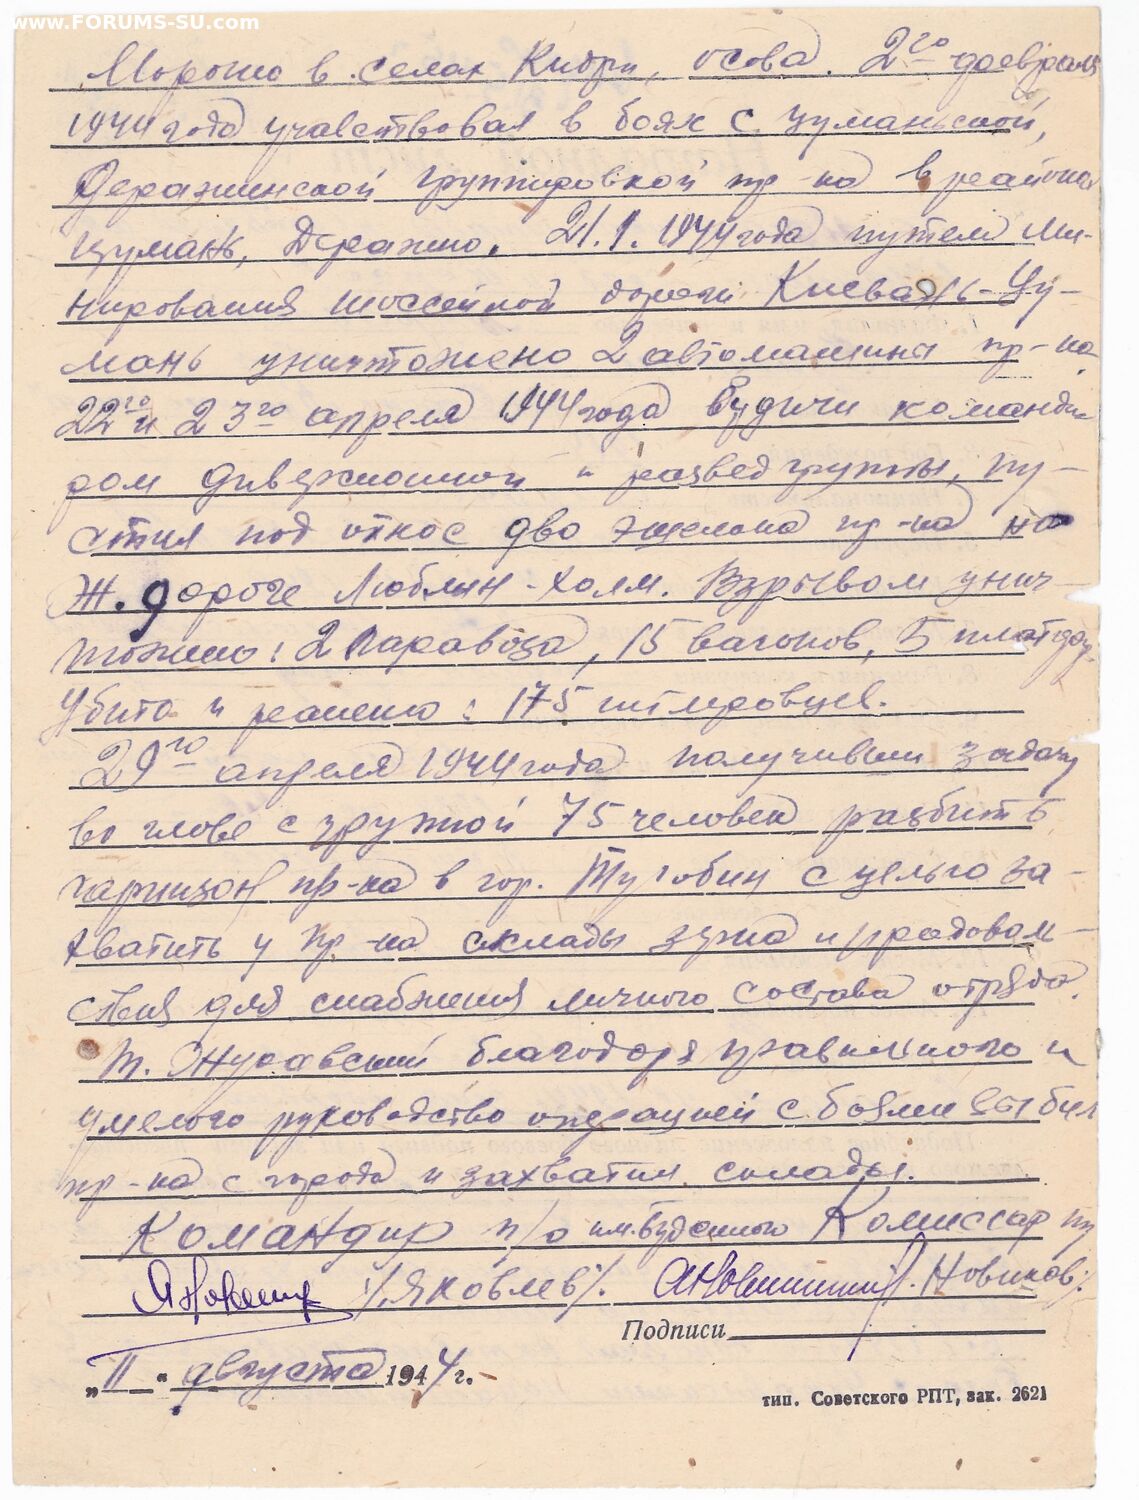 www.FORUMS-SU.com
в селах Кидры, осова. 2го февраля
1944 года учавствовал в боях с цуманьской,
Деражинской группировкой пр-ка в районах
цумань, Деражно. 21.1.1944 года путем ми-
нирования шоссейной дороги Киевань-Цу-
мань уничтожено 2 автомашины пр-ка
22го и 23го апреля 1944 года будучи команди-
ром диверсионной и развед группы, пу-
стил под откос два эшелона пр-ка на
Ж. дороге Люблин-Холм. Взрывом унич-
тожено: 2 паравоза, 15 вагонов, 5 платфор.
Убито и ранено: 175 гитлеровцев.
29го апреля 1944 года получивши задачу
во главе с групой 75 человек разбить
гарнизон пр-ка в гор. Туробин с целью за-
хватить у пр-ка склады и продоволь-
ствия для снабжения личного состава отряда.
Т. Журавский благодаря правильного и
умелого руководство операцией с боями выбил
пр-ка с города и захватил склады.
Командир п/о им. Буденного Комиссар
/.Яковлев/. /.Новиков/.
Подписи
„11“ августа 1944 г.
тип. Советского РПТ, зак. 2621